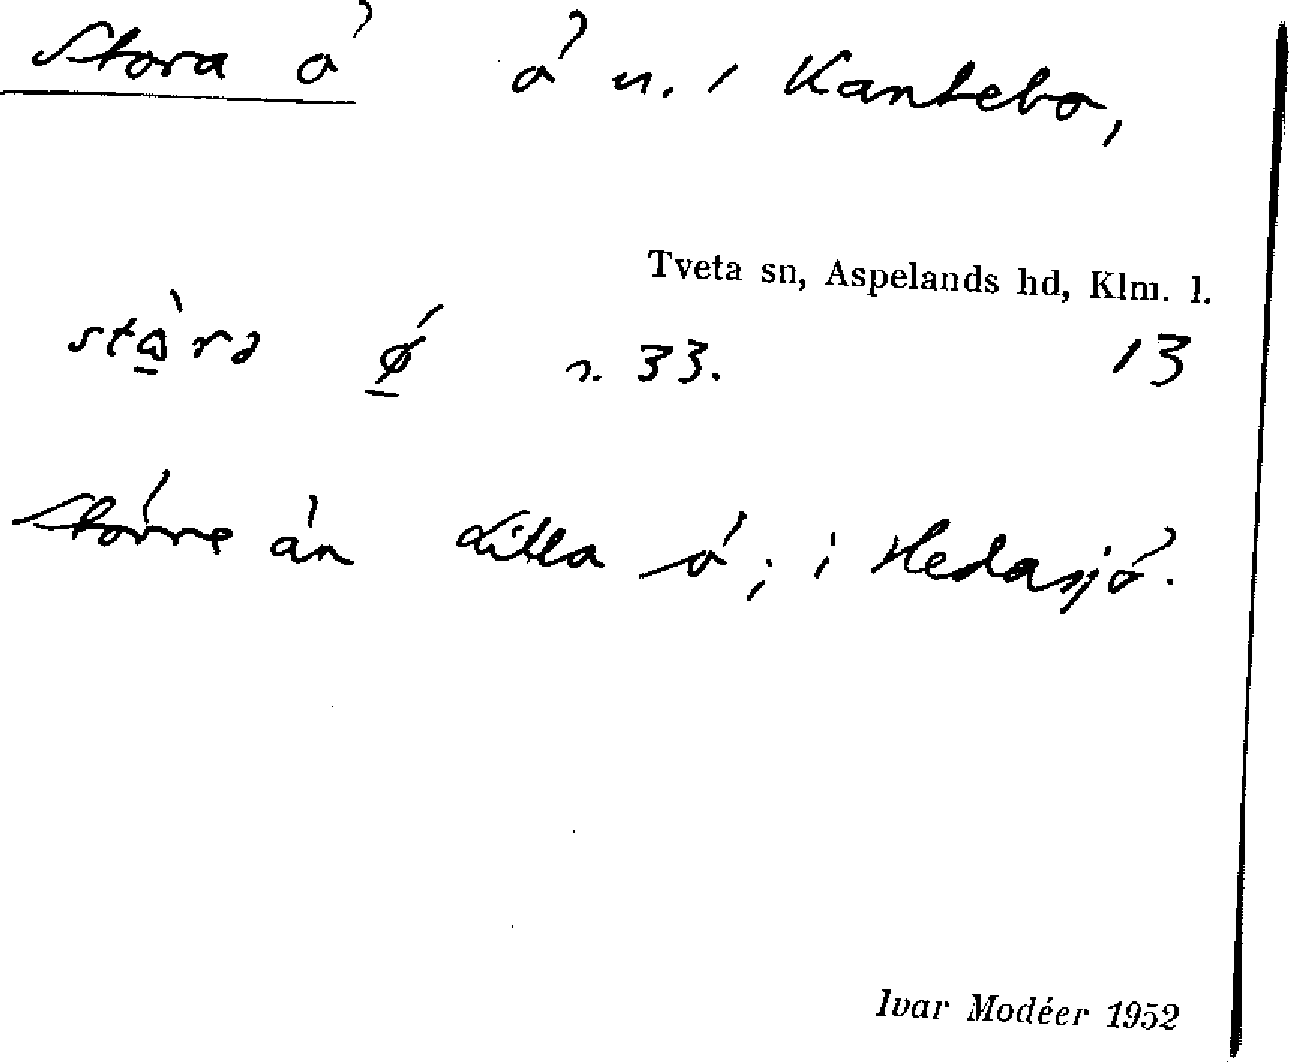 Stora ö ö n. i Kantebo,
Tveta sn, Aspelands hd, Klm. l.
stɷ̀ra ǿ r. 33. 13
Större än Lilla ö; i Hedasjö.
Ivar Modéer 1952